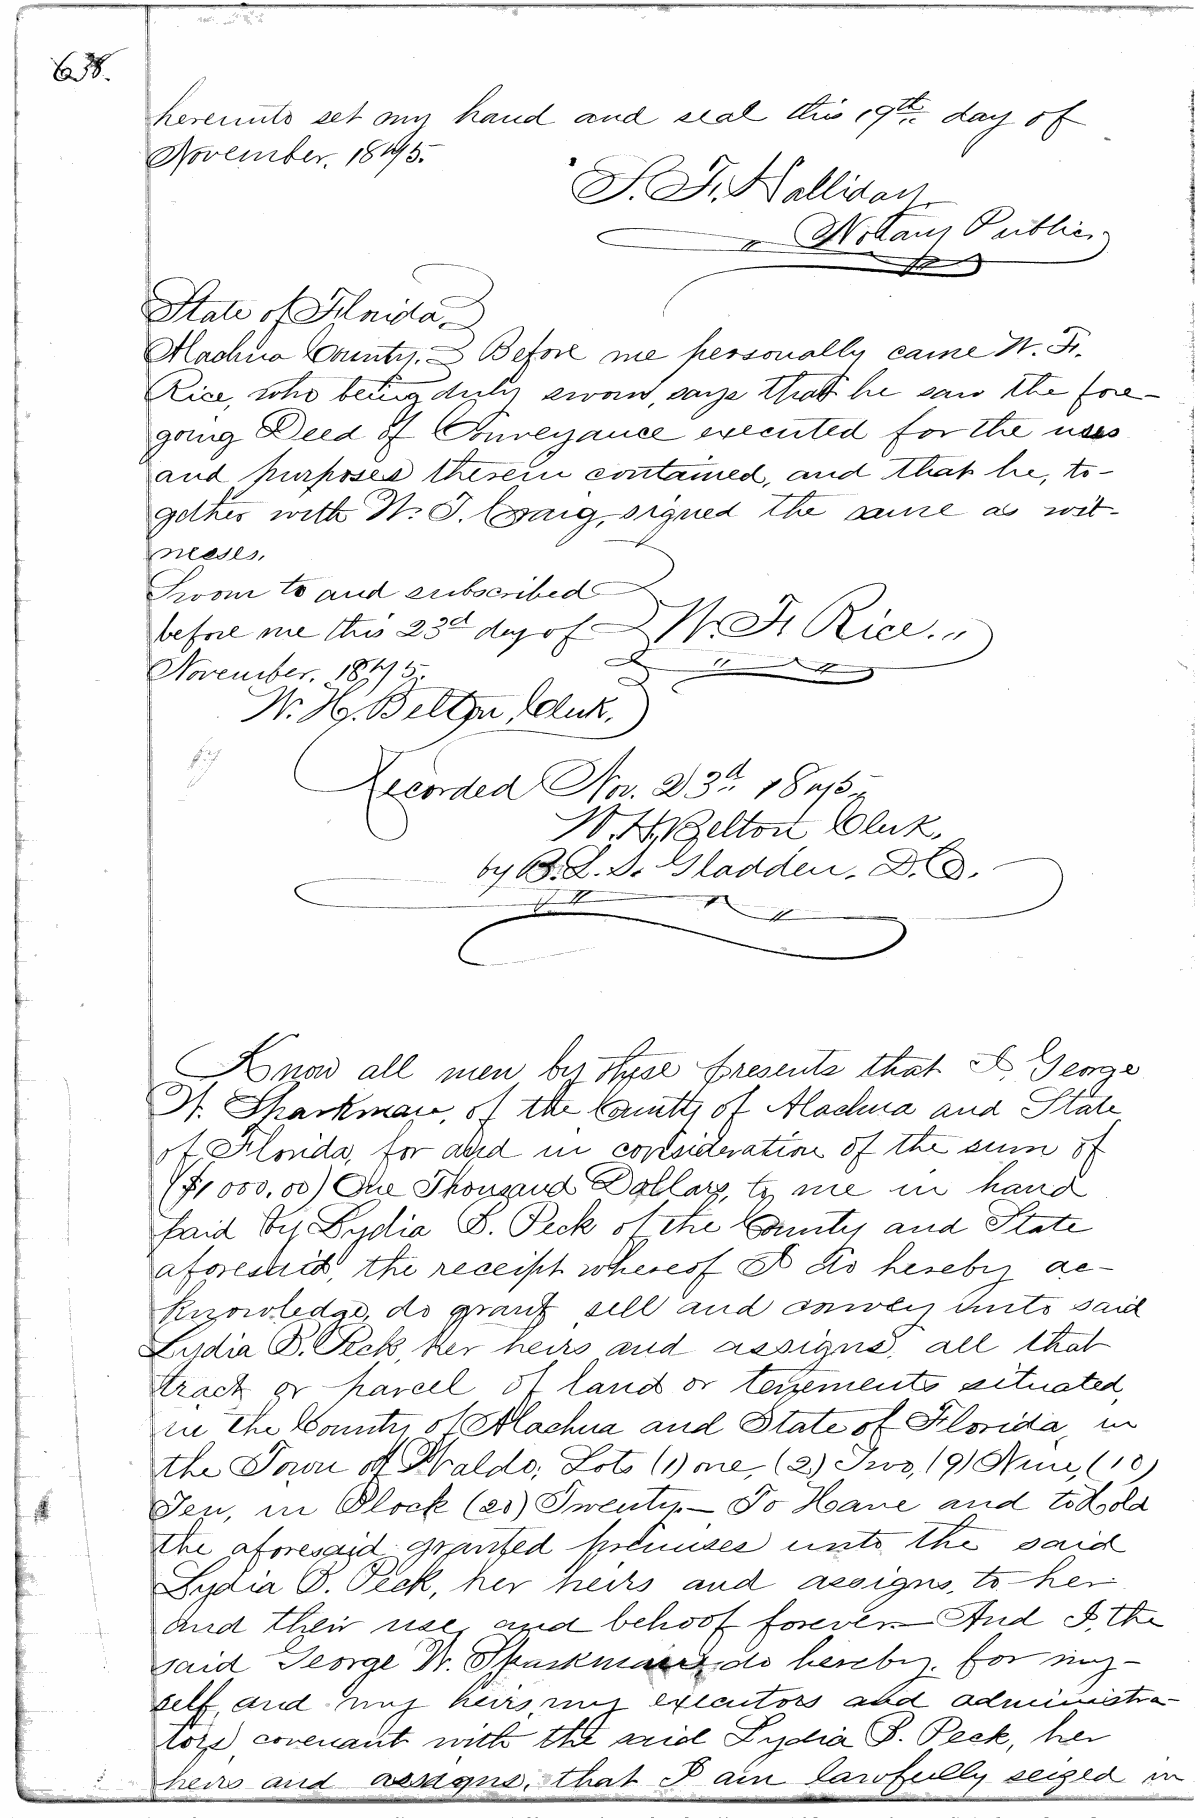 638.
hereunto set my hand and seal this 19th. day of
November, 1875.
S. F. Halliday,
Notary Public,
State of Florida
Alachua County. Before me personally came W. F.
Rice, who being duly sworn, says that he saw the fore-
going Deed of Conveyance executed for the uses
and purposes therein contained, and that he, to-
gether with W. T. Craig, signed the same as wit-
nesses.
Sworn to and subscribed
before me this 23d day of W. F. Rice. "
November, 1875.
W. H. Belton, Clerk.
by
Recorded Nov. 23d. 1875.
W. H. Belton Clerk,
by B. L. S. Gladden. D. C.
Know all men by these presents that I, George
W. Sparkman, of the County of Alachua and State
of Florida, for and in consideration of the sum of
($1000.00) One Thousand Dollars, to me in hand
paid by Lydia B. Peck of the County and State
aforesaid, the receipt whereof I do hereby ac-
knowledge, do grant, sell and convey unto said
Lydia B. Peck, her heirs and assigns, all that
tract or parcel of land or tenements situated
in the County of Alachua and State of Florida, in
the Town of Waldo, Lots (1) one, (2) Two, (9) Nine, (10)
Ten, in Block (20) Twenty.— To Have and to Hold
the aforesaid granted premises unto the said
Lydia B. Peck, her heirs and assigns, to her
and their use, and behoof forever.— And I, the
said George W. Sparkman do hereby, for my-
self, and my heirs, my executors and administra-
tors, covenant with the said Lydia B. Peck, her
heirs and assigns, that I am lawfully seized in